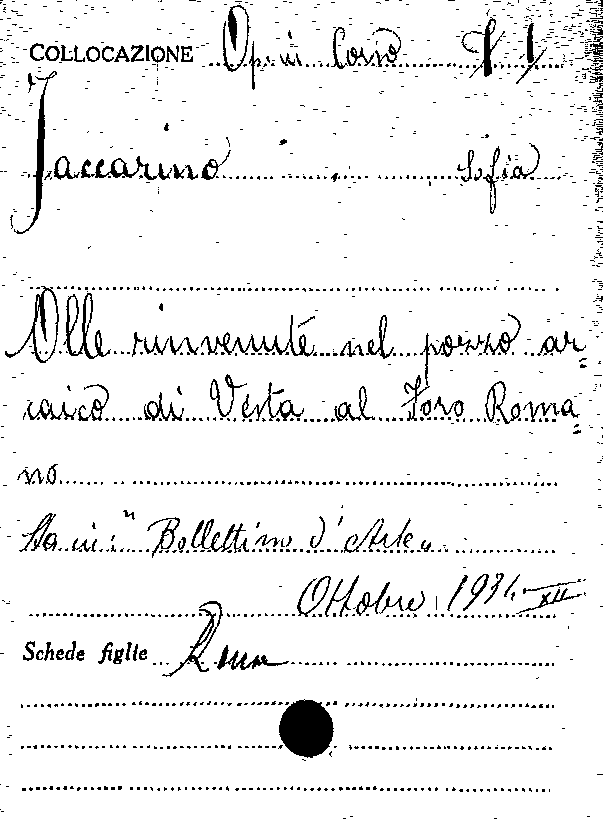 COLLOCAZIONE Op. in Corso
Jaccarino Sofia
Olle rinvenute nel pozzo ar=
caico di Vesta al Foro Roma=
no
Sta in: "Bollettino d'Arte„
Ottobre, 1934-XII
Schede figlie Roma